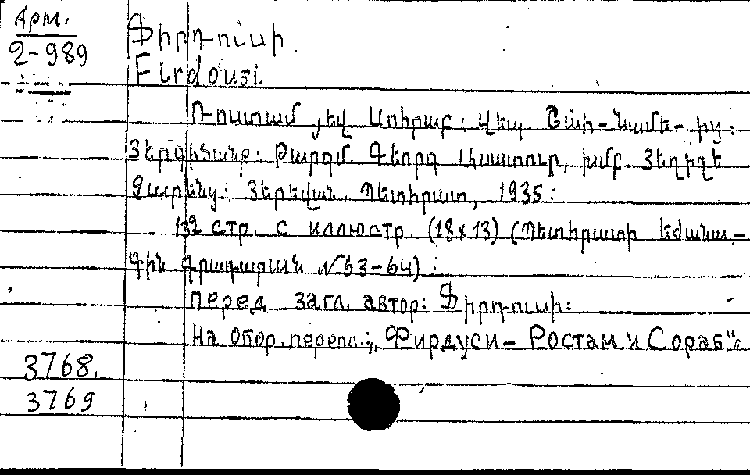 Арм.
2-989
Ֆիրդուսի.
Firdousi.
Ռուստամ յեվ Սոհրաբ: Վեպ Շահ-Նամե-ից:
Թարգմ. Գեվորգ Ասատուր, խմբ. Յեղիշե
Չարենց: Յերեվան. Պետհրատ, 1935:
132 стр. с иллюстр. (18x13) (Պետհրատի եժանա-
գին գրադարան №63-64):
перед загл. автор: Ֆիրդուսի:
На обор. перепл.: „Фирдуси - Ростам и Сораб"
3768.
3769